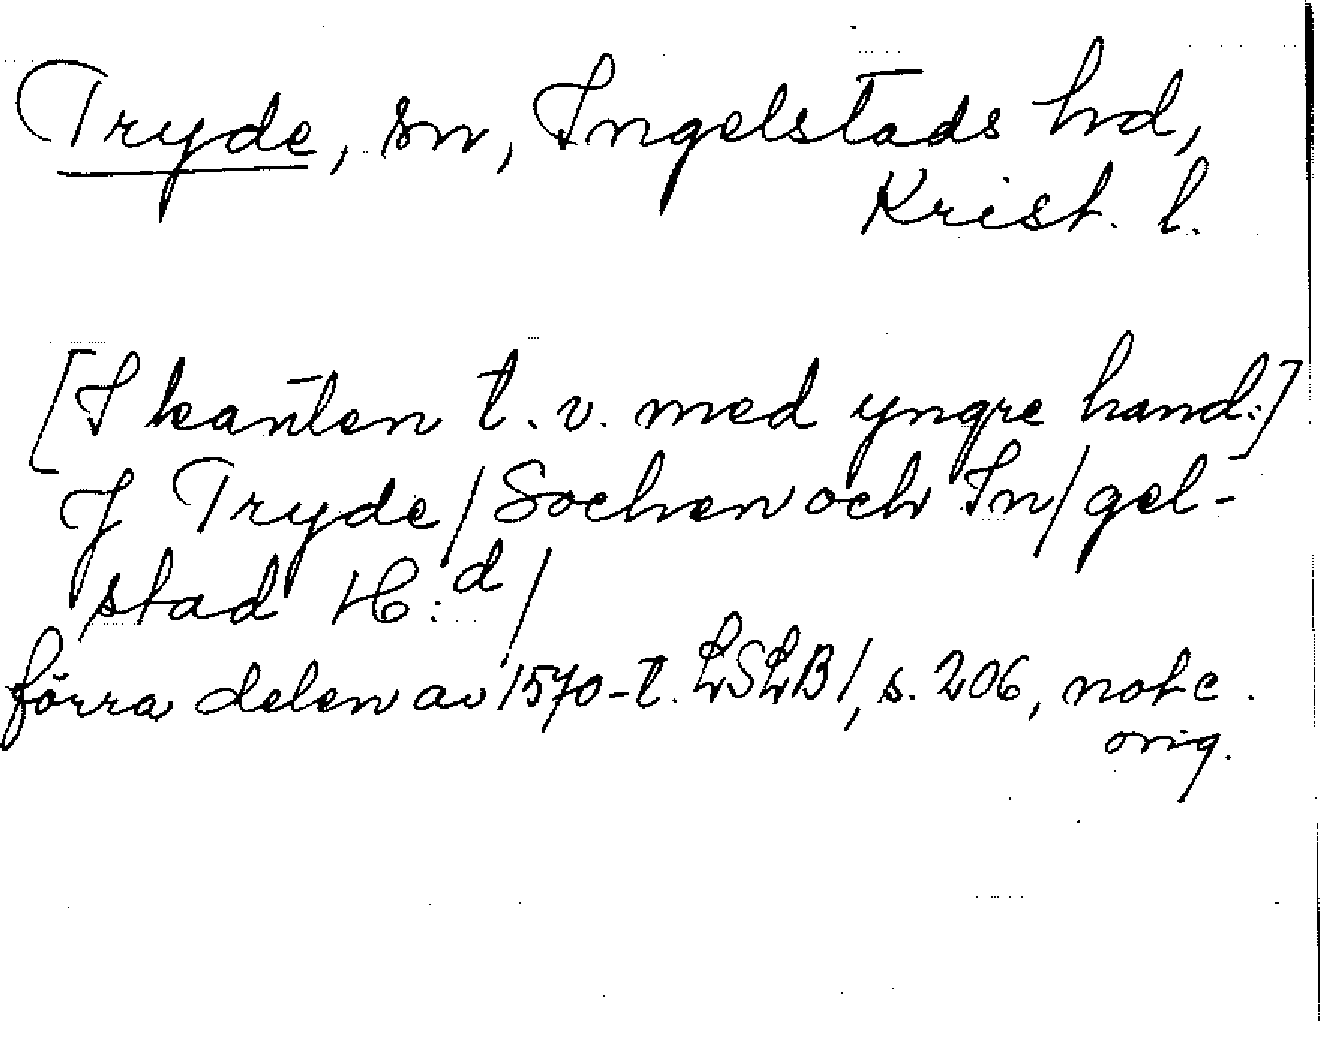 Tryde, sn, Ingelstads hd,
Krist. l.
[I kanten t.v. med yngre hand:]
J Tryde/Sochen och In/gel-
stad H:d/
förra delen av 1570-t. LSLB1, s. 206, not c.
orig.